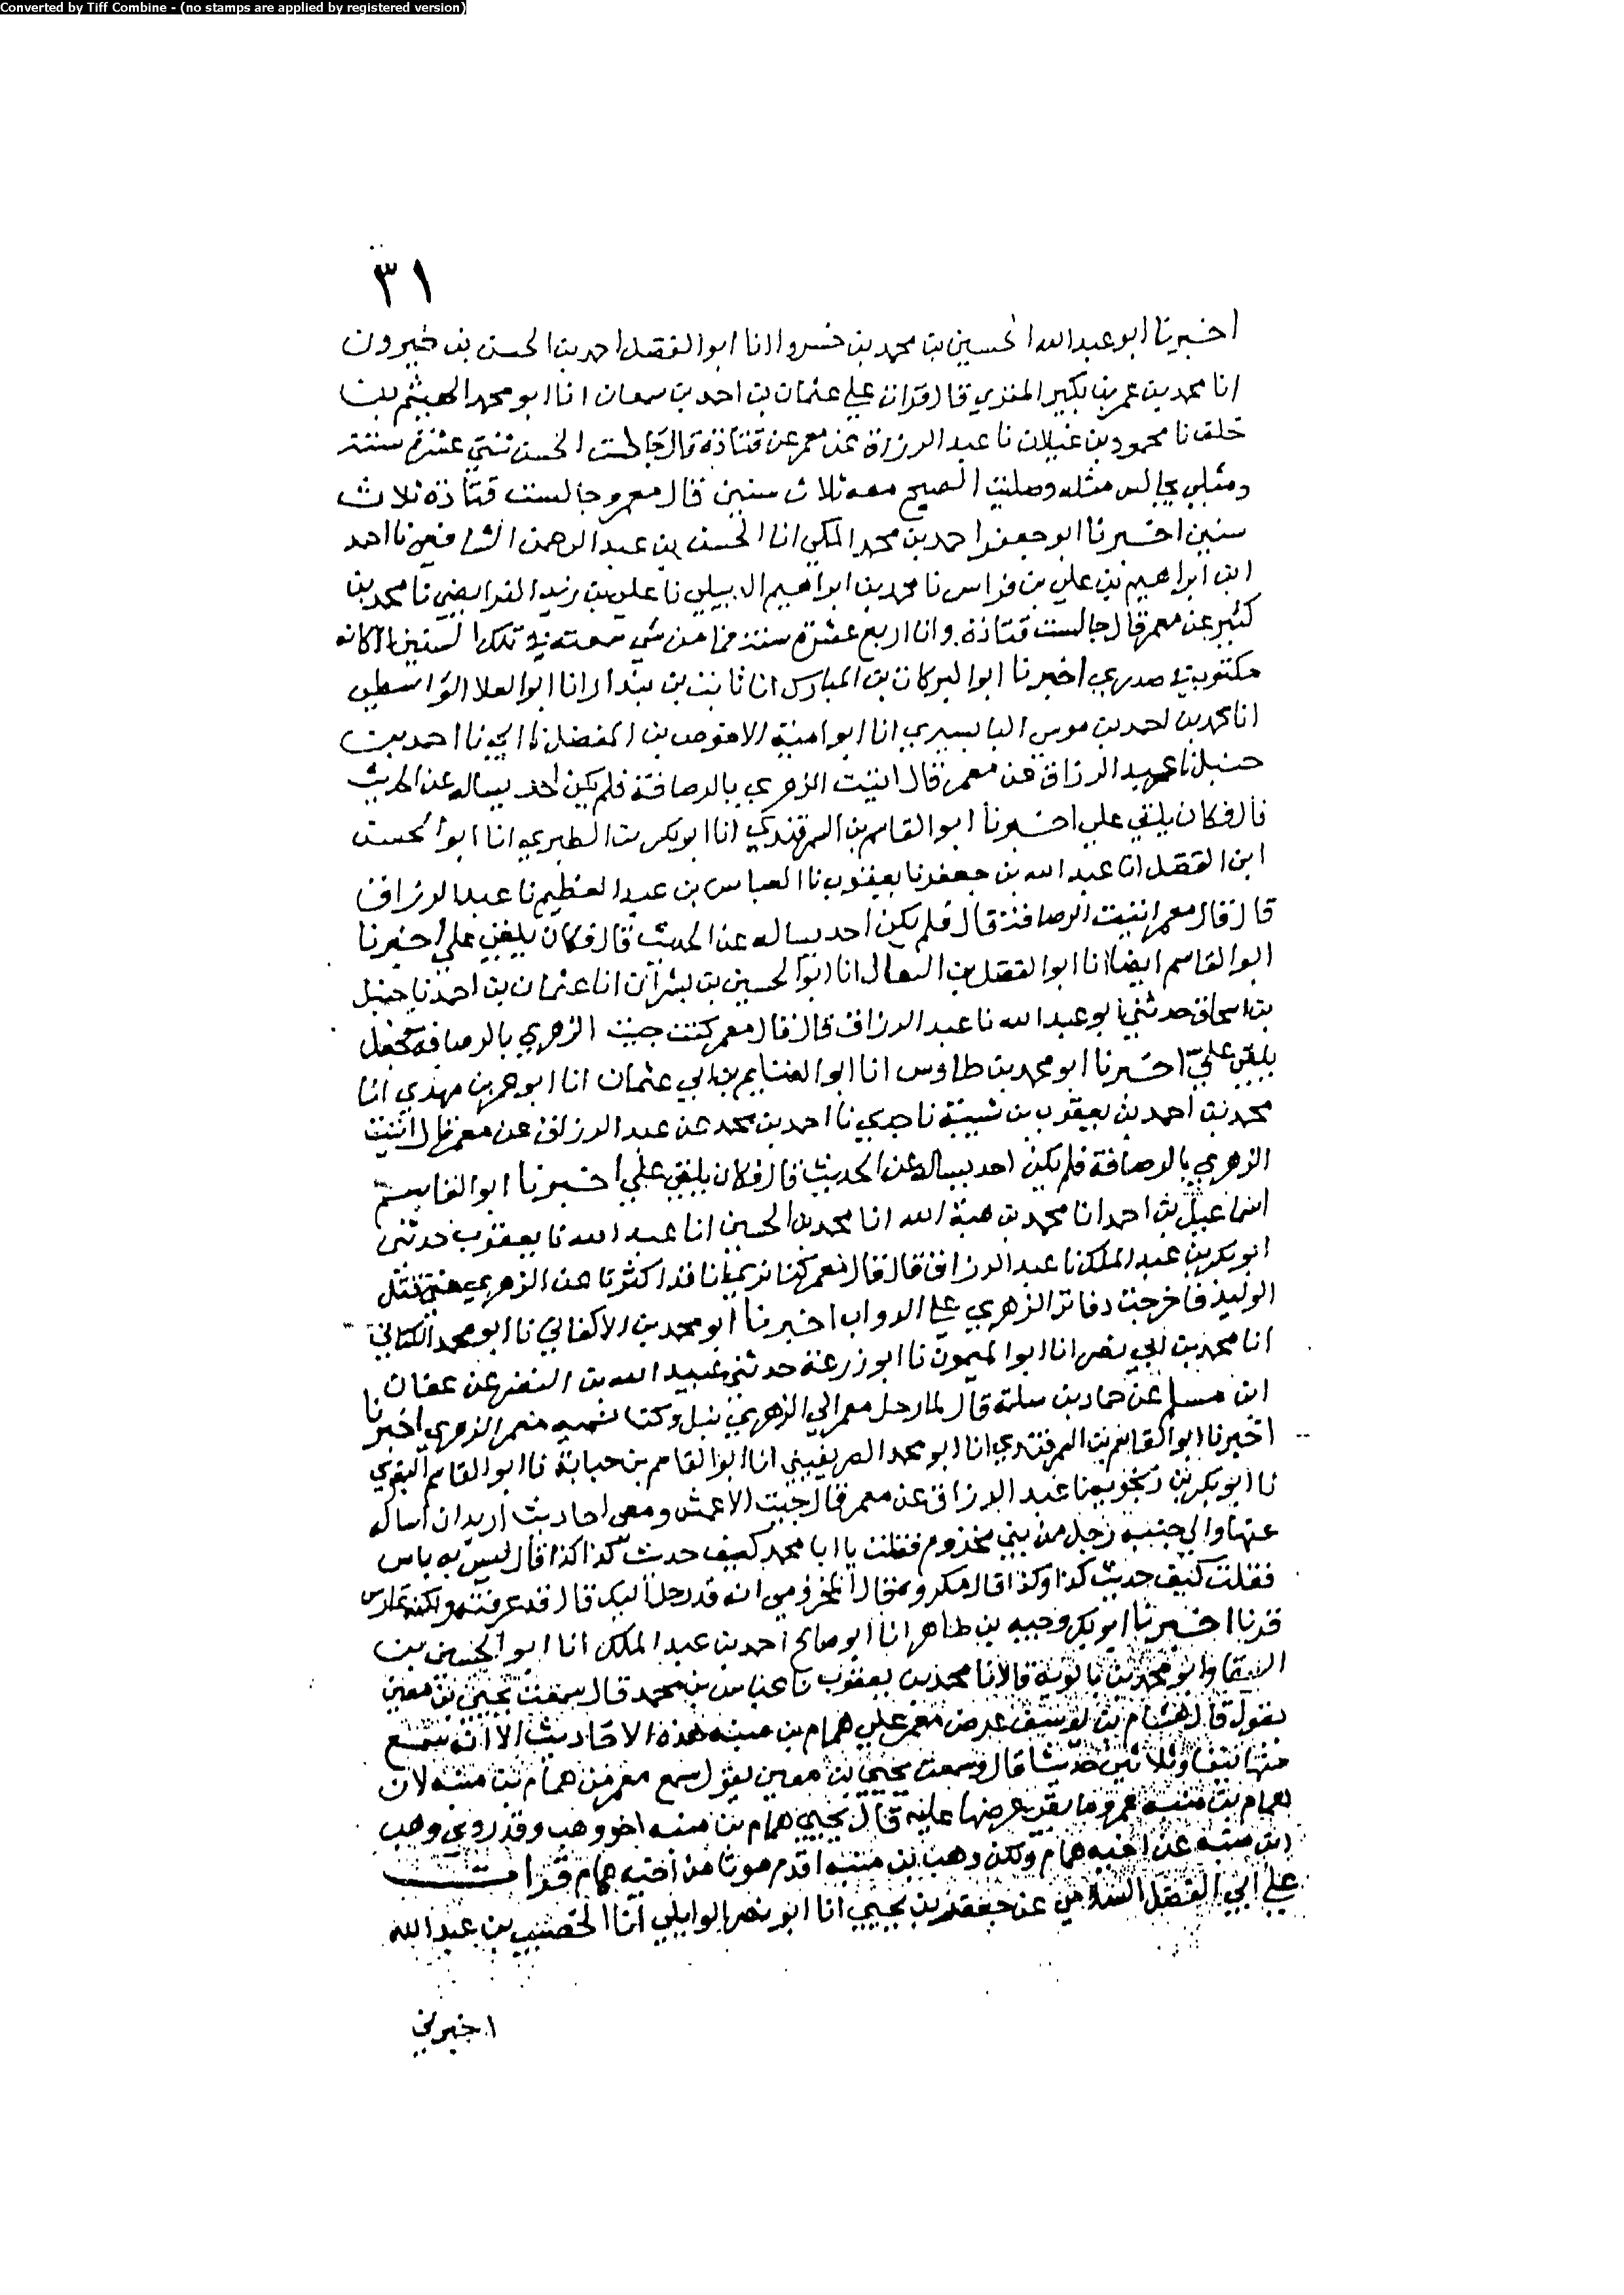 Converted by Tiff Combine - (no stamps are applied by registered version)
٣١
اخبرنا ابو عبد الله الحسين بن محمد بن خسروا انا ابو الفضل احمد بن الحسن بن خيرون
انا محمد بن عمر بن بكير المقري قال قرات علي عثمان بن احمد بن سمعان انا ابو محمد الهيثم بن
خلف نا محمود بن غيلان نا عبد الرزاق عن معمر عن قتادة قال جالست الحسن ثنتي عشرة سنة
ومثلي يجالس مثله وصليت الصبح معه ثلاث سنين قال معمر وجالست قتادة ثلاث
سنين اخبرنا ابو جعفر احمد بن محمد المكي انا الحسن بن عبد الرحمن الشافعي نا احمد
ابن ابراهيم بن علي بن فراس نا محمد بن ابراهيم الديبلي نا علي بن زيد الفرايضي نا محمد بن
كثير عن معمر قال جالست قتادة وانا اربع عشرة سنة فما من شي سمعته في تلك السنين الا كانه
مكتوب في صدري اخبرنا ابو البركات بن المبارك انا ثابت بن بندار انا ابو العلا الواسطي
انا محمد بن احمد بن موسى البابسيري انا ابو امية الاحوص بن المفضل نا ابي نا احمد بن
حنبل نا عبد الرزاق عن معمر قال اتيت الزهري بالرصافة فلم يكن احد يساله عن الحديث
قال فكان يلقي علي اخبرنا ابو القاسم بن السمرقندي انا ابو بكر بن الطبري انا ابو الحسين
ابن الفضل انا عبد الله بن جعفر نا يعقوب نا العباس بن عبد العظيم نا عبد الرزاق
قال قال معمر اتيت الرصافة قال فلم يكن احد يساله عن الحديث قال فكان يلقي علي اخبرنا
ابو القاسم ايضا انا ابو الفضل بن البقال انا ابو الحسين بن بشران انا عثمان بن احمد نا حنبل
بن اسحاق حدثني ابو عبد الله نا عبد الرزاق قال قال معمر كنت جيت الزهري بالرصافة فجعل
يلقي علي اخبرنا ابو محمد بن طاوس انا ابو الغنايم بن ابي عثمان انا ابو عمر بن مهدي انا
محمد بن احمد بن يعقوب بن شيبة نا جدي نا احمد بن محمد عن عبد الرزاق عن معمر قال اتيت
الزهري بالرصافة فلم يكن احد يساله عن الحديث قال فكان يلقي علي اخبرنا ابو القاسم
اسماعيل بن احمد انا محمد بن هبة الله انا محمد بن الحسين انا عبد الله نا يعقوب حدثني
ابو بكر بن عبد الملك نا عبد الرزاق قال قال معمر كنا نري انا قد اكثرنا عن الزهري حتى قتل
الوليد فاخرجت دفاتر الزهري علي الدواب اخبرنا ابو محمد بن الاكفاني نا ابو محمد الكتاني
انا محمد بن ابي نصر انا ابو الميمون نا ابو زرعة حدثني عبيد الله بن عن عفان
ابن مسلم عن حماد بن سلمة قال لما رحل معمر الي الزهري نبل وكنا نسميه معمر الزهري اخبرنا
اخبرنا ابو القاسم بن السمرقندي انا ابو محمد الصريفيني انا ابو القاسم بن حبابة نا ابو القاسم البغوي
نا ابو بكر بن زنجويه نا عبد الرزاق عن معمر قال جيت الاعمش ومعي احاديث اريد ان اساله
عنها والي جنبه رجل من بني مخزوم فقلت يا ابا محمد كيف حديث كذا كذا قال ليس به باس
فقلت كيف حديث كذا وكذا قال مكروه فقال المخزومي انه قد رحل اليك قال قد عرفته ولكنه
قدنا اخبرنا ابو بكر وجيه بن طاهر انا ابو صالح احمد بن عبد الملك انا ابو الحسن بن
السقا وابو محمد بن بالويه قالا نا محمد بن يعقوب نا عباس بن محمد قال سمعت يحيي بن معين
يقول قال هشام بن يوسف عرض معمر علي همام بن منبه هذه الاحاديث الا انه سمع
منها نيفا وثلاثين حديثا قال وسمعت يحيي بن معين يقول سمع معمر من همام بن منبه لان
همام بن منبه عمر وما بقي عرضها عليه قال يحيي همام بن منبه اخو وهب وقد روي وهب
ابن منبه عن اخيه همام ولكن وهب بن منبه اقدم موتا من اخيه همام قرات
علي ابي الفضل السلامي عن جعفر بن يحيي انا ابو نصر الوايلي انا الخصيب بن عبد الله
اخبرني